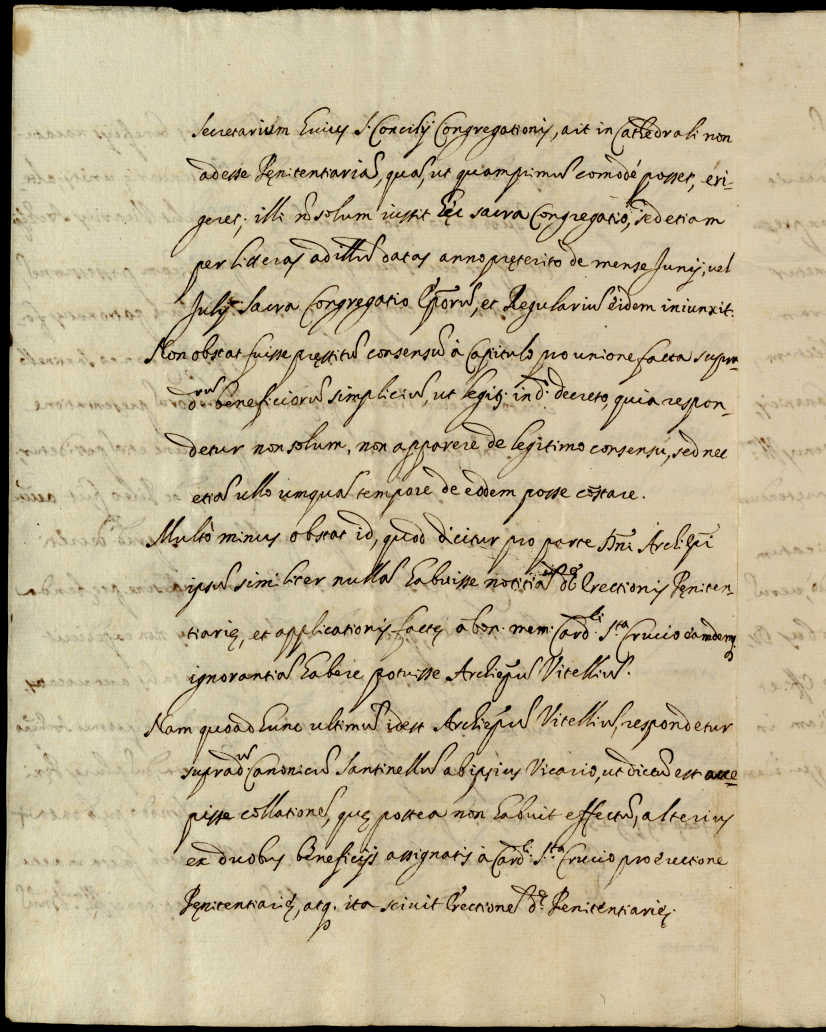 secretarium huius S. Concilij Congregationis, ait in Cathedrali non
adesse Pęnitentiariā, quā, ut quamprimū comodè posset, eri-
geret; illi nō solum iussit hęc sacra Congregatio, sed etiam
per litteras ad illū datas anno pręterito de mense Junij, vel
Julij Sacra Congregatio Epōrū, et Regulariū eidem iniunxit.
Non obstat fuisse pręstitū consensū à Capitulo pro unione facta supra
d.rū beneficiorū simpliciū, ut legit.r in d.o decreto, quia respon-
detur non solum, non apparere de legitimo consensu, sed nec
etiā ullo umquā tempore de eodem posse cōstare.
Multò minus obstat id, quod dicitur pro parte Dni Archiepī
ipsū similiter nullā habuisse notitiā dę Erectionis Pęniten-
tiarię, et applicationis factę a bon: mem: Card.li S.ta Crucio eamdemq
ignorantiā habere potuisse Archiepū Vitelliū.
Nam quoad hunc ultimū idest Archiepū Vitelliū, respondetur
suprad.ū Canonicū Santinellū ab ipsius Vicario, ut dictū est acce-
pisse collationē, quę postea non habuit effectū, alterius
ex duobus beneficijs assignatis à Card.li S.ta Crucio pro erectione
Pęnitentiarię, atq. ita scivit Erectionē d.ę Pęnitentiarię.